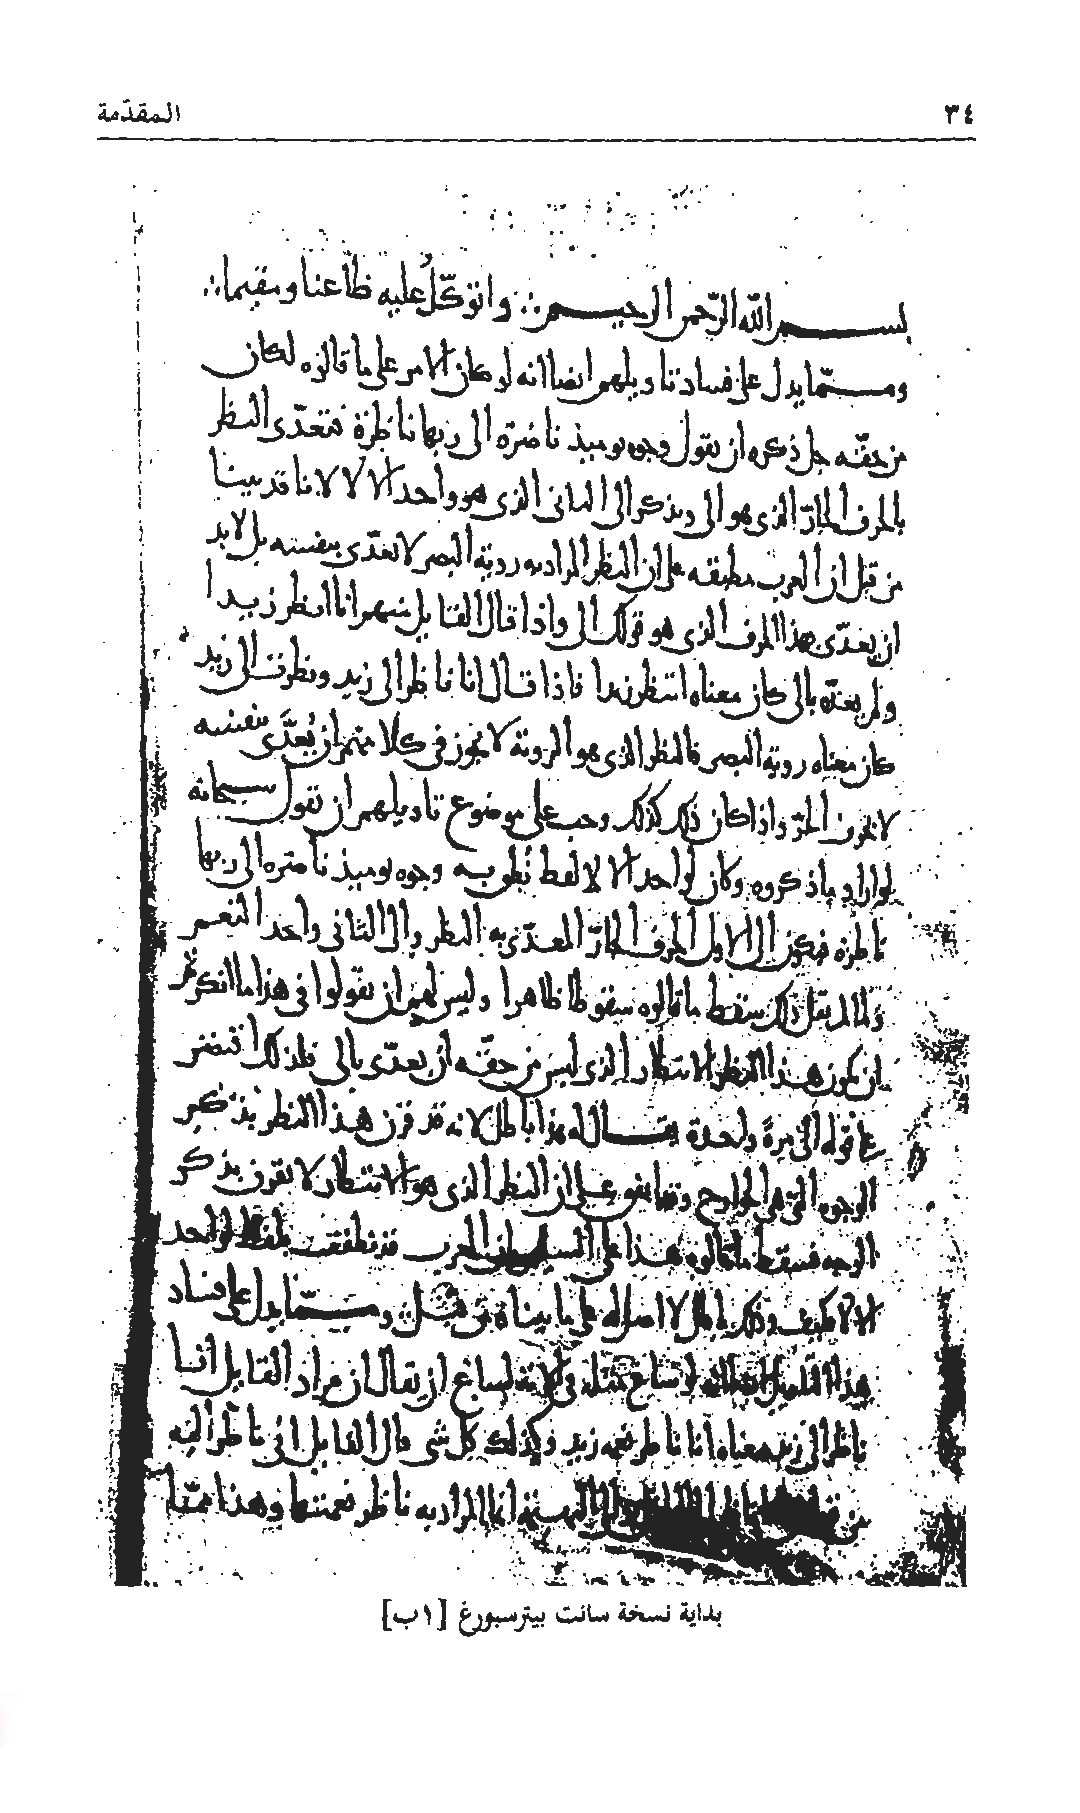 ٣٤ المقدّمة
بسم الله الرّحمن الرحيم واتوكّل عليه ظاعنا ومقيما
وممّا يدل على فساد تاويلهم ايضا انه لو كان الامر على ما قالوه لكان
من حقّه جل ذكره ان يقول وجوه يوميذ ناضرّة الى ربها ناظرة فتعدّى النظر
بالحرف الجارّ الذي هو الى ويذكر الى الثاني الذي هو واحد الالا لانا قد بينا
من قبل ان العرب مطبقه على ان النظر المراد به روية البصر لا تعدّى بنفسه بل لا بد
ان يعدّى بهذا الحرف الذي هو قولك الى واذا قال القايل منهم انا انظر زيدا
ولم يعدّه بالى كان معناه انتظر زيدا فاذا قال انا ناظر الى زيد ونظرت الى زيد
كان معناه روية البصر فالنظر الذي هو الروية لا يجوز في كلامهم ان يُعدَّى بنفسه
لا بحرف الجرّ واذا كان ذلك كذلك وجب على موضوع تاويلهم ان يقول سبحانه
لو اراد ما ذكروه وكان لواحد الالا لفظ نُطق به وجوه يوميذ ناضره الى ربها
ناظره فيكون الى الاول الحرف الجارّ المعدّى به النظر والى الثاني واحد النعم
ولما لم يقل ذلك سقط ما قالوه سقوطا ظاهرا وليس لهم ان يقولوا في هذا ما انكرتم
ان يكون هذا النظر الانتظار الذي ليس من حقّه ان يعدّى بالى فلذلك اقتصر
على قوله الى مرة واحدة يقال له هذا باطل لانه قد قرن هذا النظر بذكر
الوجوه التي هي الجوارح وقد اتفقوا على ان النظر الذي هو الانتظار لا يقرن بذكر
الوجه فسقط ما قالوه هذا على ان لسان العرب فد نطقت بلفظ لواحد
الالا كيف وذلك باطل لا اصل له على ما بيناه من قبل وممّا يدل على فساد
هذا التاويل انه لو ساغ مثله في الايه لساغ ان يقال ان مراد القايل انا
ناظر الى زيد معناه انا ناظر نعمه زيد وكذلك كل شي قال القايل اني ناظر اليه
من المراد به ناظر نعمتها وهذا ممّا
بداية نسخة سانت بيترسبورغ [١ب]